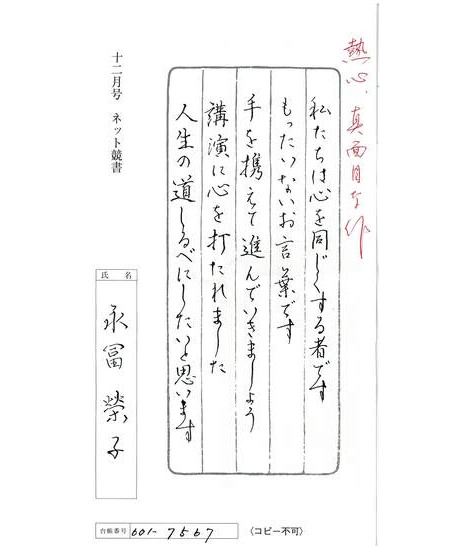 熱心、真面目な作
私たちは心を同じくする者です
もったいないお言葉です
手を携えて進んでいきましょう
講演に心を打たれました
人生の道しるべにしたいと思います
十二月号 ネット競書
氏名
永冨 榮子
台帳番号 601-7567
(コピー不可)